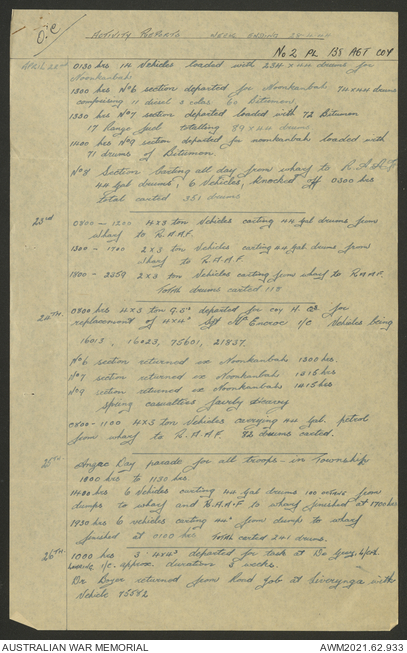 O.C
ACTIVITY REPORTS WEEK ENDING 28-4-42
No 2 PL 135 AGT COY
APRIL 22nd 0130 hrs 14 Vehicles loaded with 234 x 44 drums for
Noonkanbah
1300 hrs No 6 section departed for Noonkanbah 74 x 44 drums
comprising 11 diesel 3 60 Bitumen
1330 hrs No 7 section departed loaded with 72 Bitumen
17 Range fuel totalling 89 x 44 drums
1400 hrs No 9 section departed for noonkanbah loaded with
71 drums of Bitumen.
No 8 Section carting all day from wharf to R.A.A.F
44 Gal drums, 6 Vehicles, knocked off 0300 hrs
Total carted 351 drums
23rd 0800 - 1200 4x3 ton Vehicles carting 44 gal drums from
wharf to R.A.A.F.
1300 - 1700 2x3 ton Vehicles carting 44 gal. drums from
wharf to R.A.A.F.
1800 - 2359 2x3 ton Vehicles carting from wharf to R.A.A.F.
Total drums carted 118
24TH. 0800 hrs 4x3 ton G.S' departed for H. Q for
replacement of 4x4's Sgt I/C Vehicles being
16013, 16023, 75601, 21837.
No 6 section returned ex Noonkanbah 1300 hrs.
No 7 section returned ex Noonkanbah 1415 hrs
No 9 section returned ex Noonkanbah 1415 hrs
Spring casualties fairly
0800 - 1100 4x3 ton Vehicles carrying 44 gal. petrol
from wharf to R.A.A.F. 82 drums carted.
25TH. Anzac Day parade for all troops - in Township
1000 hrs to 1130 hrs.
1400 hrs 6 Vehicles carting 44 gal drums from
dumps to wharf and R.A.A.F to wharf finished at 1700 hrs
1930 hrs 6 vehicles carting 44' from dump to wharf
finished at 0100 hrs Total carted 241 drums.
26TH. 1000 hrs 3 4x4's departed for task at
I/C. approx. duration 3 weeks.
Dr returned from Road Job at with
Vehicle 75582
AUSTRALIAN WAR MEMORIAL
AWM2021.62.933